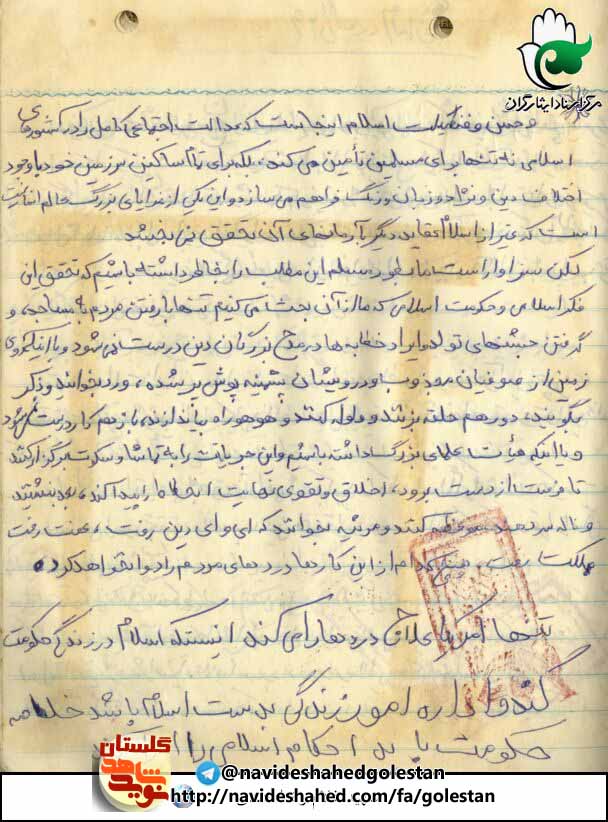 مرکز اسناد ایثارگران
و حسن و فضیلت اسلام اینجاست که عدالت اجتماعی کامل را در کشورهای
اسلامی نه تنها برای مسلمین تأمین می کند، بلکه برای تمام ساکنین سرزمین خود با وجود
اختلاف دین و نژاد و زبان و رنگ فراهم می سازد و این یکی از مزایای بزرگ عالم انسانیت
است که غیر از اسلام عقاید دیگر به آرمانهای آن تحقق نمی بخشد
لکن سزاوار است ما بطور مسلم این مطلب را بخاطر داشته باشیم که تحقق این
فکر اسلامی و حکومت اسلامی که ما از آن بحث می کنیم تنها با رفتن مردم به مساجد، و
گرفتن جشنهای تولد و ایراد خطابه ها در مدح بزرگان دین درست نمی شود و با اینکه گروهی
زمین از صوفیان مجذوب و درویشان پشمینه پوش پر شده، ورد بخوانند و ذکر
بگویند، دور هم حلقه بزنند و ولوله کنند و هوهو راه بیاندازند، باز هم کار درست نمی شود
و یا اینکه هیأت علمای بزرگ داشته باشیم و این جریانات را به تماشا و سکوت برگزار کنند
تا فرصت از دست برود، اخلاق و تقوی نهایت انحطاط را پیدا کند، بعد بنشینند
و ناله سر دهند، موعظه کنند و مرثیه بخوانند که ای وای دین رفت، عفت رفت
مملکت رفت، هیچ کدام از این کارها دردهای مردم را دوا نخواهد کرد.
تنها امری که علاج دردها را می کند اینستکه اسلام در زندگی حکومت
کند و اداره امور زندگی بدست اسلام باشد خلاصه
حکومت باید احکام اسلامی را
گلستان
نوید شاهد
@navideshahedgolestan
http://navideshahed.com/fa/golestan